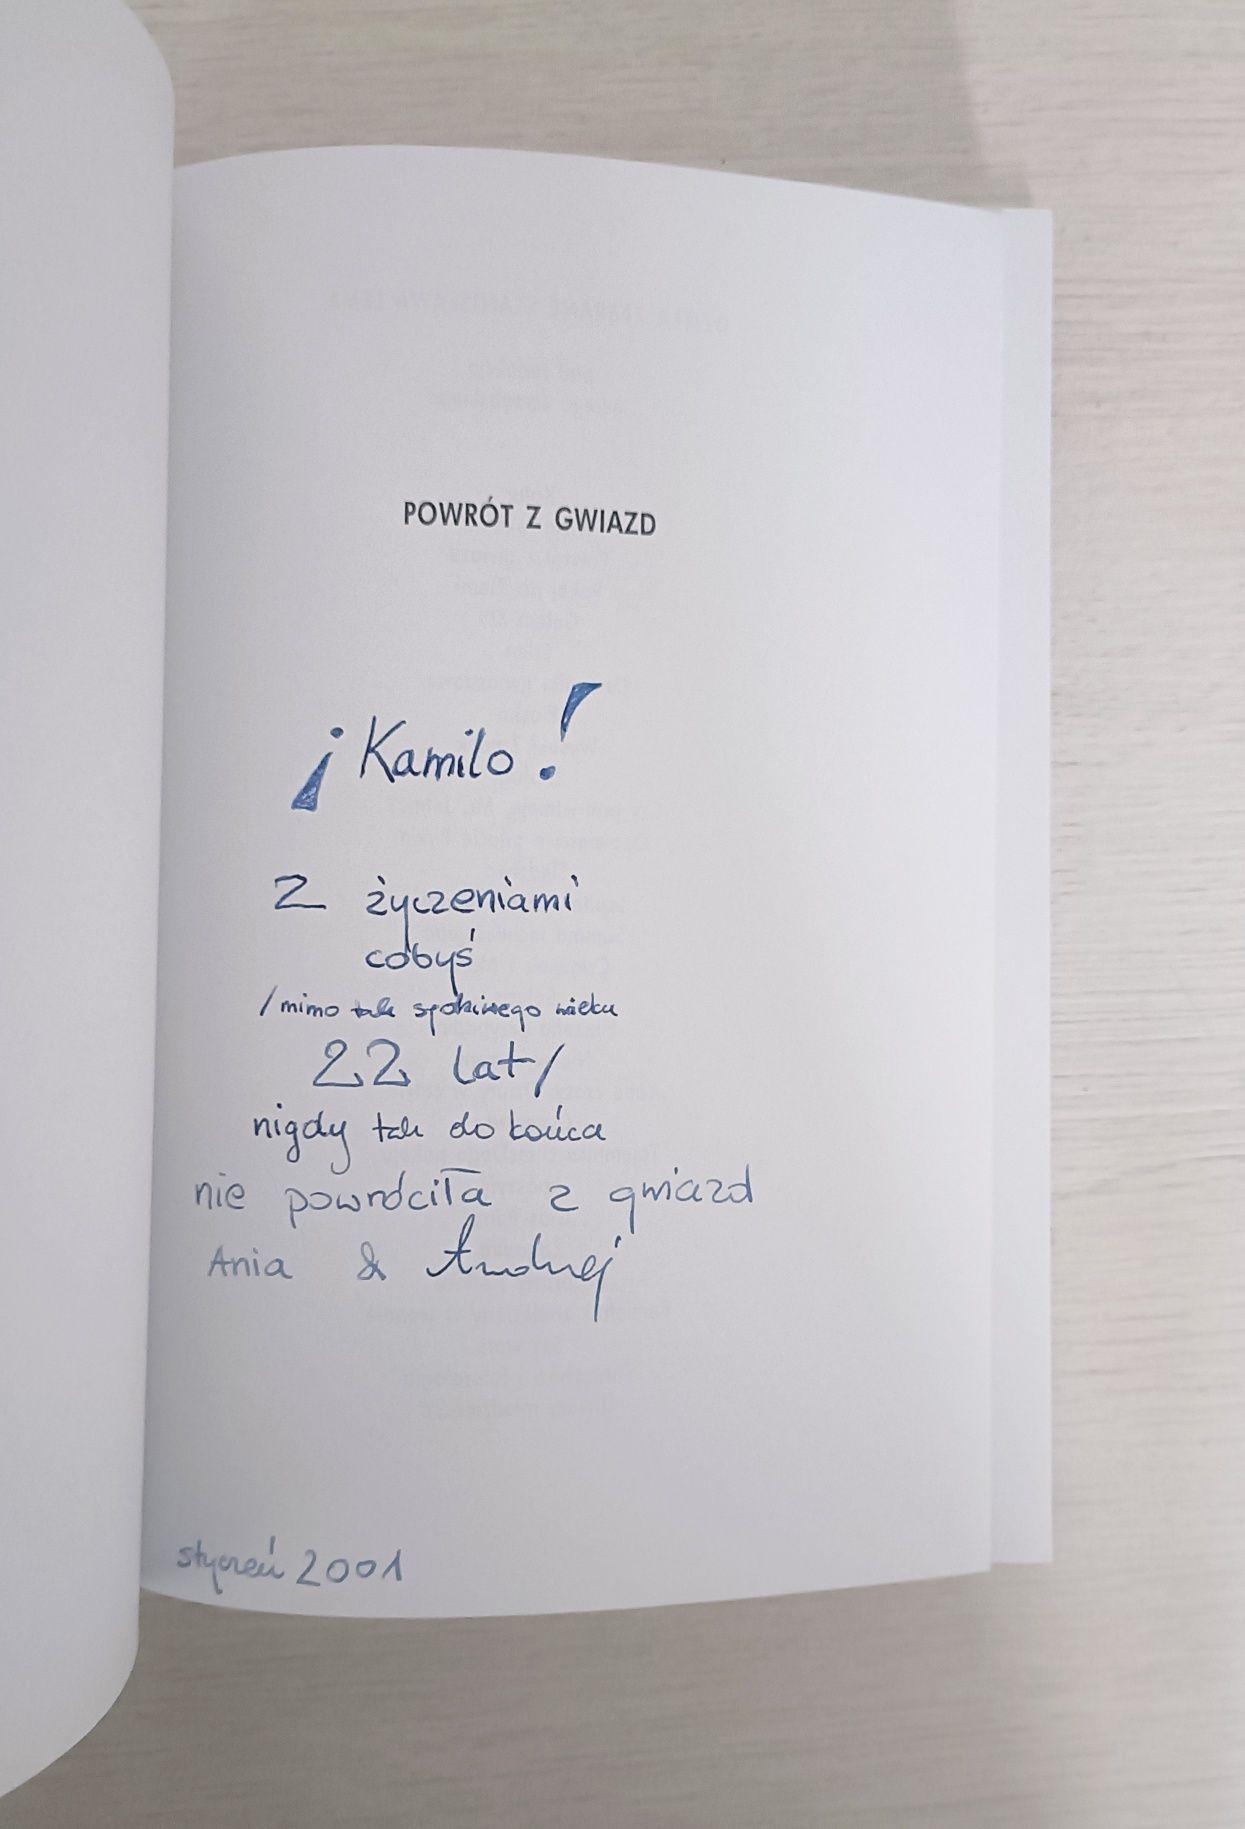 POWRÓT Z GWIAZD
¡Kamilo!
Z życzeniami
cobyś
/mimo tak wieku
22 lat/
nigdy tak do końca
nie powróciła z gwiazd
Ania & Andrzej
styczeń 2001